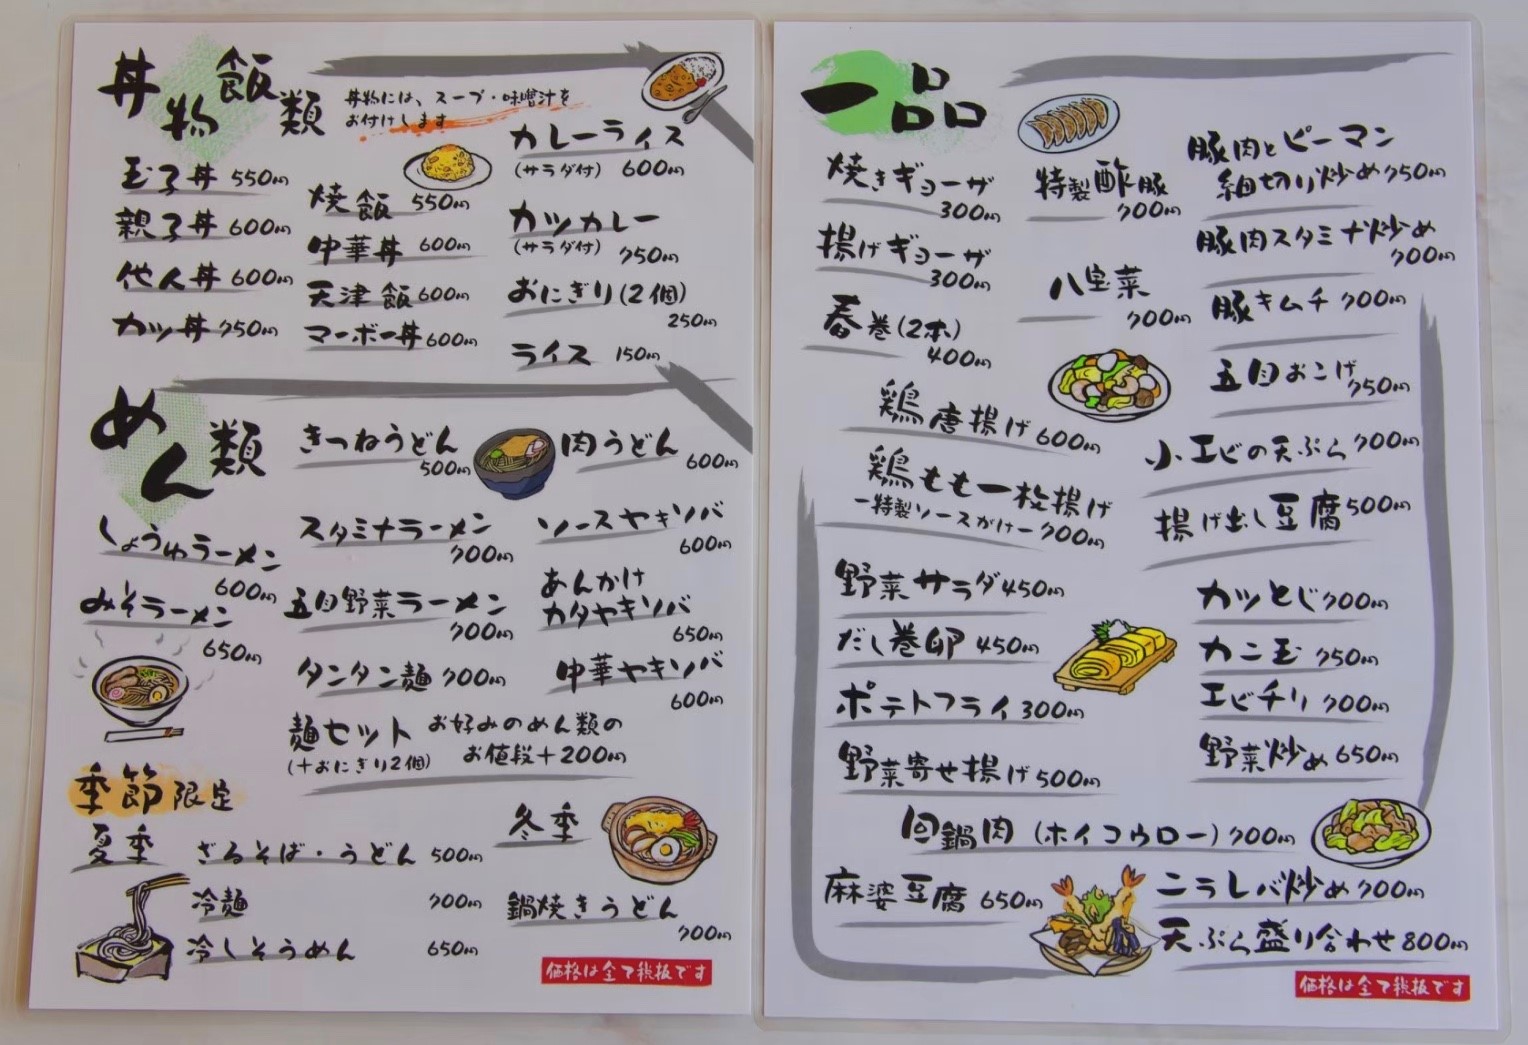 丼物飯類
丼物には、スープ・味噌汁を
お付けします
玉子丼 550円
親子丼 600円
他人丼 600円
カツ丼 750円
焼飯 550円
中華丼 600円
天津飯 600円
マーボー丼 600円
カレーライス
(サラダ付) 600円
カツカレー
(サラダ付) 750円
おにぎり(2個)
250円
ライス 150円
めん類
きつねうどん
500円
肉うどん
600円
しょうゆラーメン
600円
みそラーメン
650円
スタミナラーメン
700円
五目野菜ラーメン
700円
タンタン麺 700円
ソースヤキソバ
600円
あんかけ
カタヤキソバ
650円
中華ヤキソバ
600円
麺セット お好みのめん類の
(+おにぎり2個) お値段+200円
季節限定
夏季
ざるそば・うどん 500円
冷麺 700円
冷しそうめん 650円
冬季
鍋焼きうどん
700円
価格は全て税抜です
一品
焼きギョーザ
300円
揚げギョーザ
300円
春巻(2本)
400円
特製酢豚
700円
八宝菜
700円
豚肉とピーマン
細切り炒め 750円
豚肉スタミナ炒め
700円
豚キムチ 700円
五目おこげ
750円
鶏唐揚げ 600円
鶏もも一枚揚げ
ー特製ソースがけー 700円
小エビの天ぷら 700円
揚げ出し豆腐 500円
野菜サラダ 450円
だし巻卵 450円
ポテトフライ 300円
野菜寄せ揚げ 500円
カツとじ 700円
カニ玉 750円
エビチリ 700円
野菜炒め 650円
回鍋肉 (ホイコウロー) 700円
麻婆豆腐 650円
ニラレバ炒め 700円
天ぷら盛り合わせ 800円
価格は全て税抜です